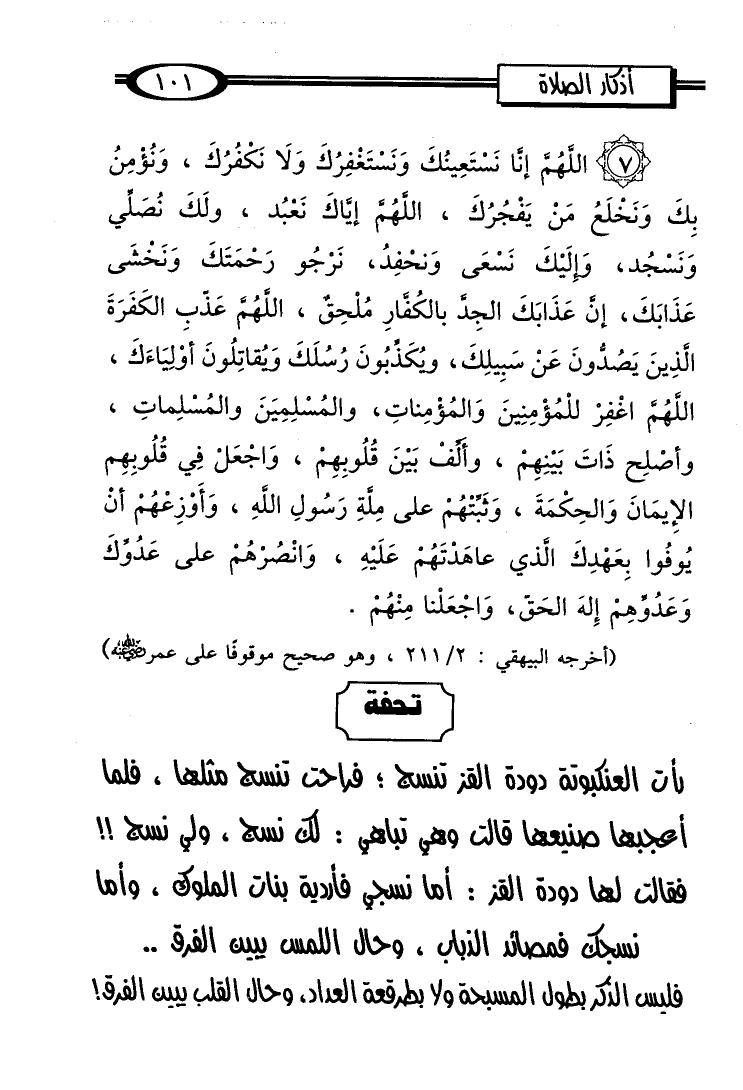 أذكار الصلاة
١٠١
٧ اللَّهُمَّ إنَّا نَسْتَعِينُكَ وَنَسْتَغْفِرُكَ وَلَا نَكْفُرُكَ ، وَنُؤْمِنُ
بِكَ وَنَخْلَعُ مَنْ يَفْجُرُكَ ، اللَّهُمَّ إيَّاكَ نَعْبُد ، ولَكَ نُصَلِّي
وَنَسْجُد، وَإِلَيْكَ نَسْعَى وَنحْفِدُ، نَرْجُو رَحْمَتَكَ وَنَخْشَى
عَذَابَكَ، إنَّ عَذَابَكَ الجِدَّ بالكُفَّارِ مُلْحِقٌ ، اللَّهُمَّ عَذِّبِ الكَفَرَةَ
الَّذِينَ يَصُدُّونَ عَنْ سَبِيلِكَ، ويُكَذِّبُونَ رُسُلَكَ وَيُقاتِلُونَ أوْلِيَاءَكَ ،
اللَّهُمَّ اغْفِرْ للْمُؤْمِنِينَ وَالمُؤْمِناتِ، والمُسْلِمِيَنَ والمُسْلِماتِ ،
وأصْلِح ذَاتَ بَيْنِهِمْ ، وألِّفْ بَيْنَ قُلُوبِهِمْ ، وَاجْعَلْ فِي قُلُوبِهِم
الإِيمَانَ وَالحِكْمَةَ ، وَثَبِّتْهُمْ على مِلَّةِ رَسُولِ اللَّهِ ، وَأَوْزِعْهُمْ أنْ
يُوفُوا بِعَهْدِكَ الَّذي عاهَدْتَهُمْ عَلَيْهِ ، وَانْصُرْهُمْ على عَدُوِّكَ
وَعَدُوِّهِمْ إلهَ الحَقّ، وَاجْعَلْنا مِنْهُمْ .
(أخرجه البيهقي : ٢١١/٢ ، وهو صحيح موقوفًا على عمر رضي الله عنه)
تحفة
رأت العنكبوتة دودة القز تنسج ؛ فراحت تنسج مثلها ، فلما
أعجبها صنيعها قالت وهي تباهي : لك نسج ، ولي نسج !!
فقالت لها دودة القز : أما نسجي فأردية بنات الملوك ، وأما
نسجك فمصائد الذباب ، وحال اللمس يبين الفرق ..
فليس الذكر بطول المسبحة ولا بطرقعة العداد، وحال القلب يبين الفرق!